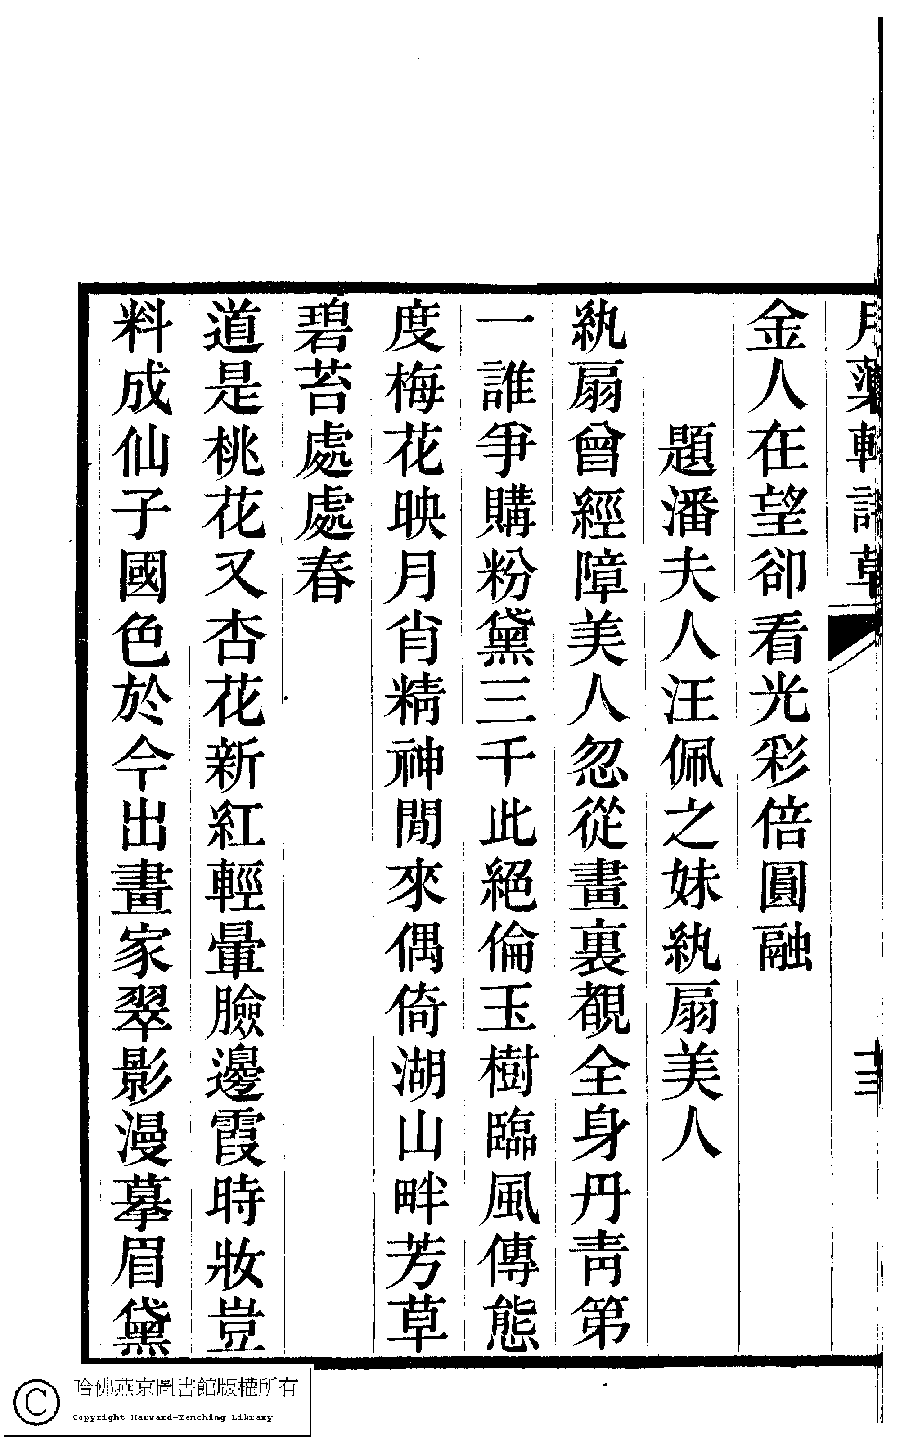 月蕖軒詩草
十三
金人在望卻看光彩倍圓融
題潘夫人汪佩之妹紈扇美人
紈扇曾經障美人忽從畫裏覩全身丹靑第
一誰爭購粉黛三千此絕倫玉樹臨風傳態
度梅花映月肖精神閒來偶倚湖山畔芳草
碧苔處處春
道是桃花又杏花新紅輕暈臉邊霞時妝豈
料成仙子國色於今出畫家翠影漫摹眉黛
哈佛燕京圖書館版權所有
Copyright Harvard-Yenching Library